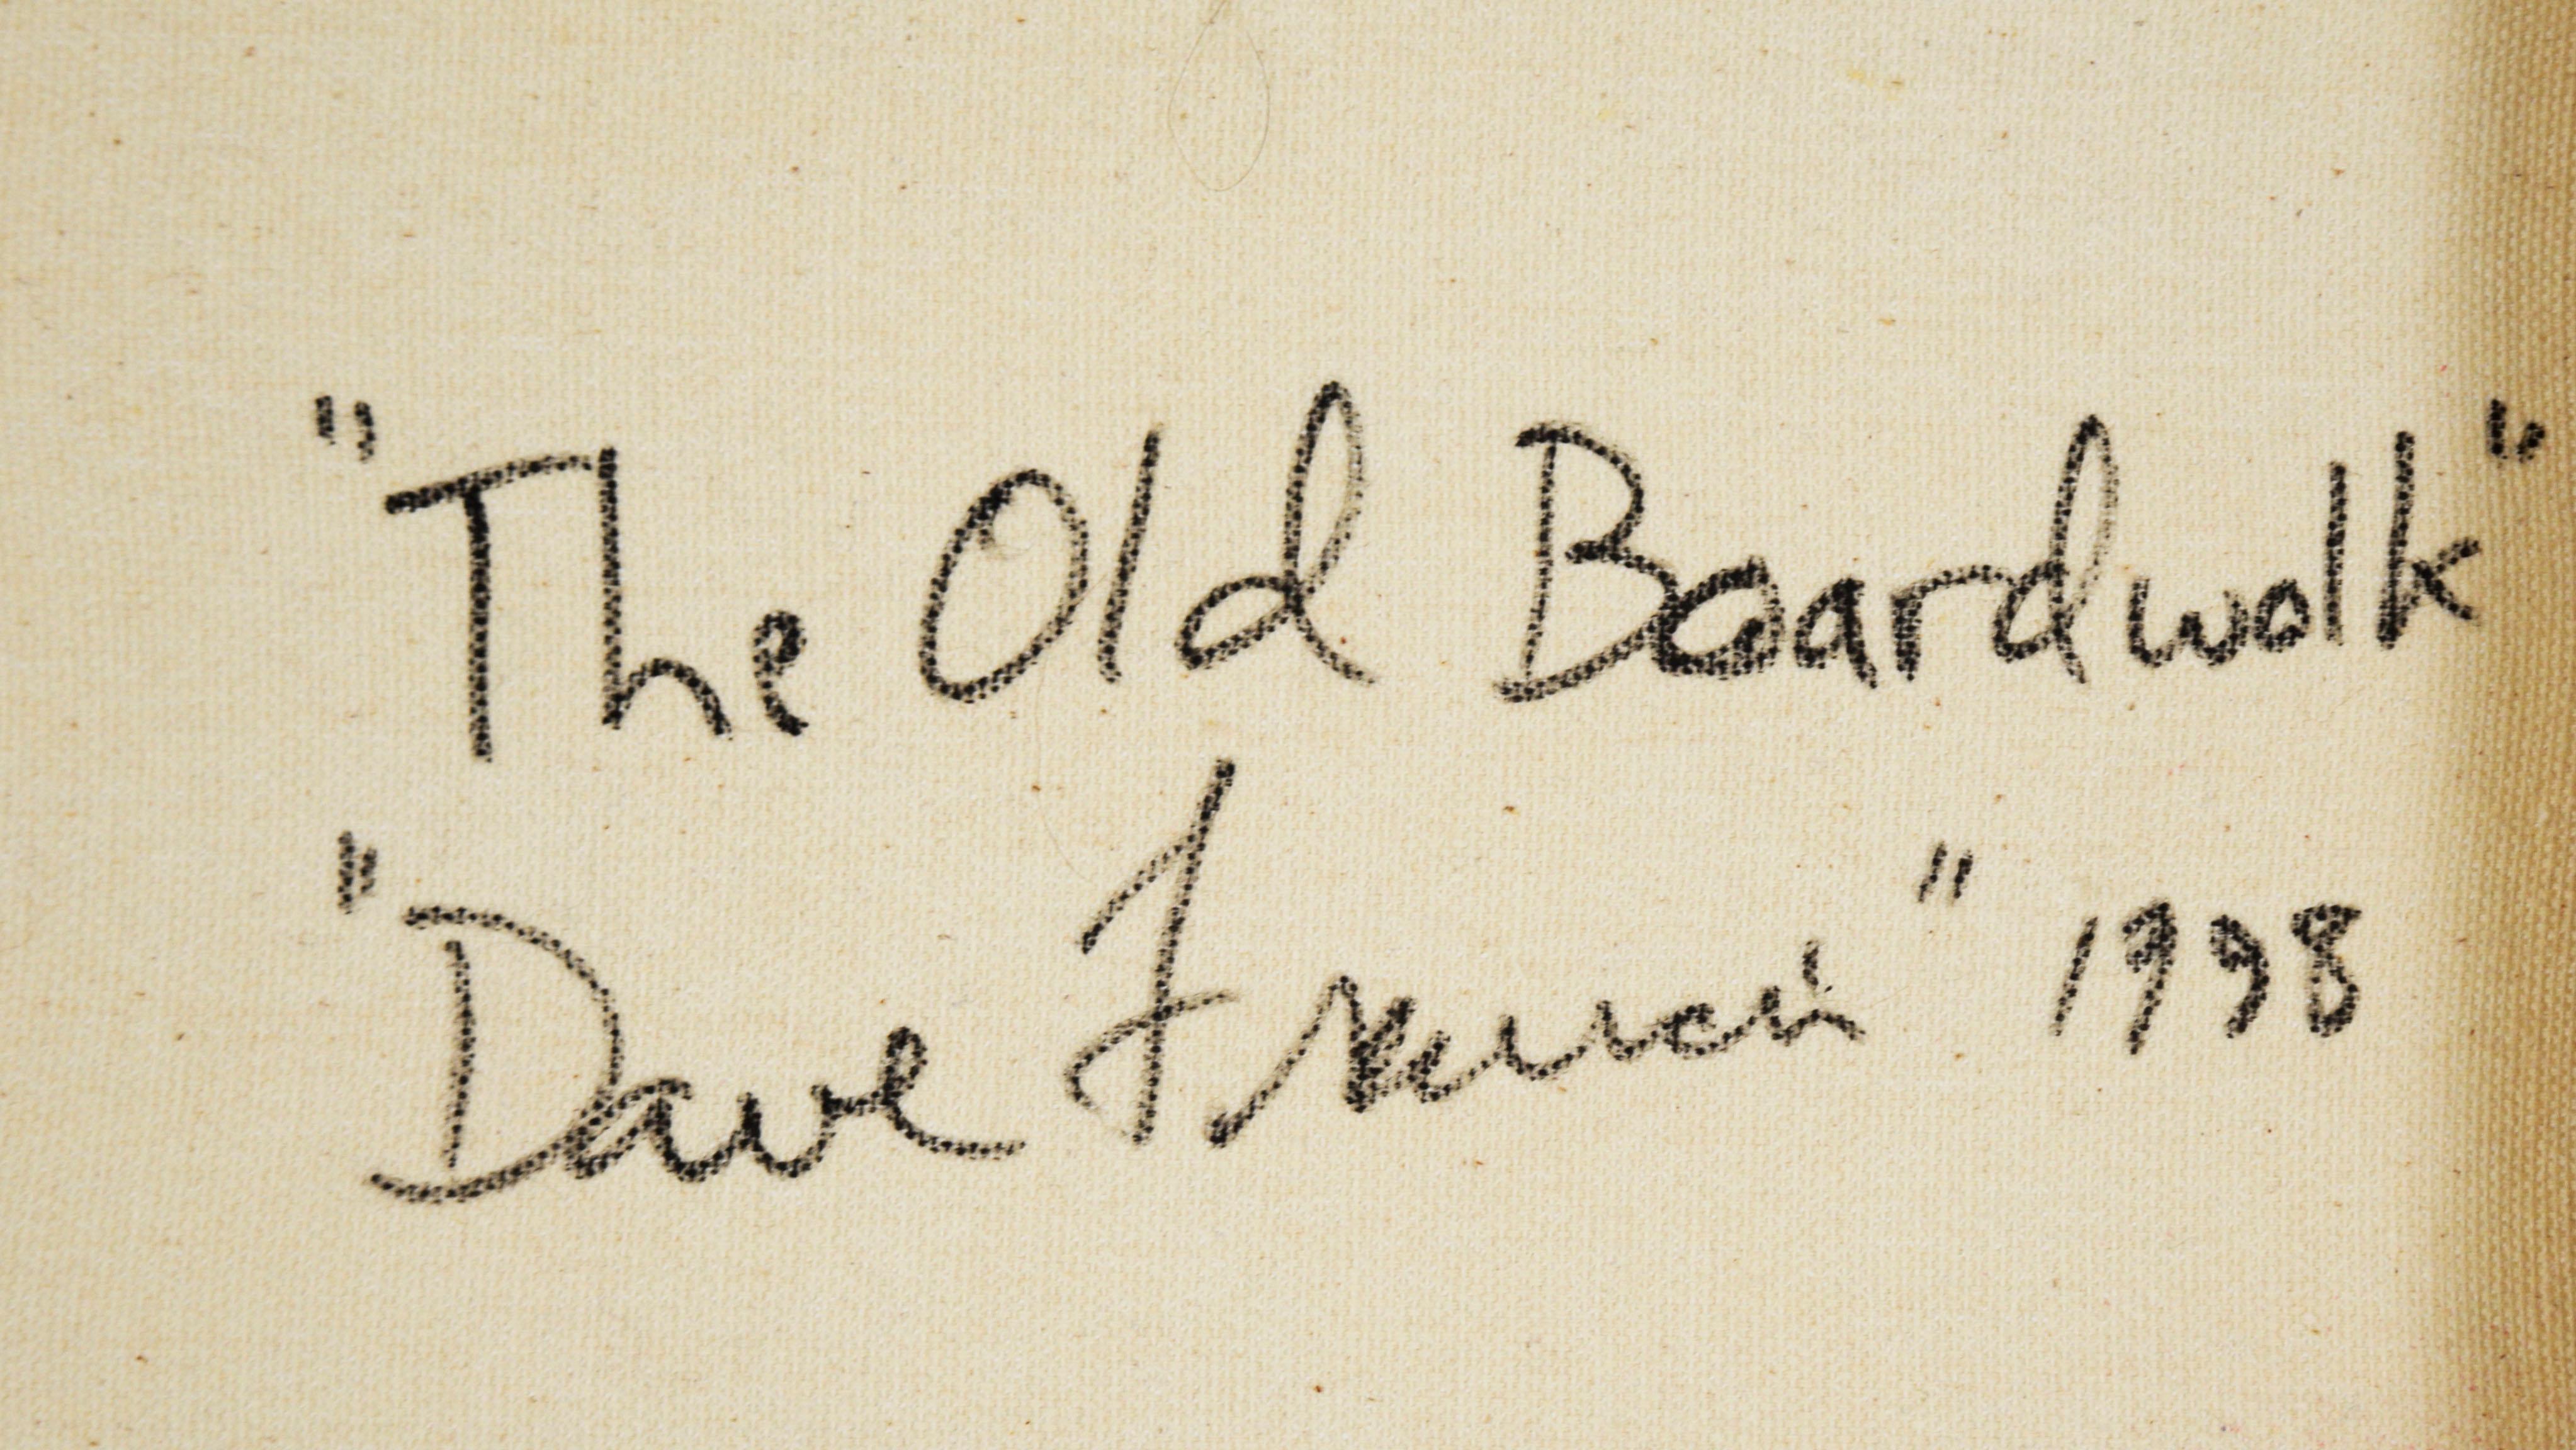 "The Old Boardwalk"
"Dave Francis" 1998